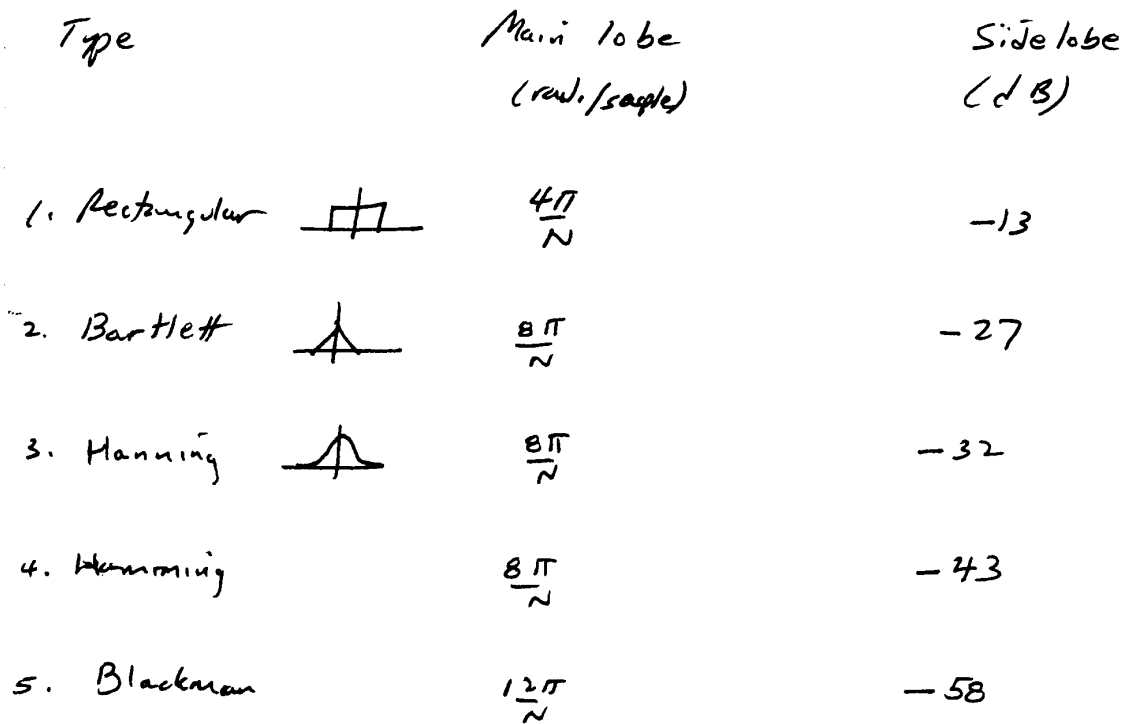 Type Main lobe Side lobe
(rad./sample) (dB)
1. Rectangular 4π/N -13
2. Bartlett 8π/N -27
3. Hanning 8π/N -32
4. Hamming 8π/N -43
5. Blackman 12π/N -58